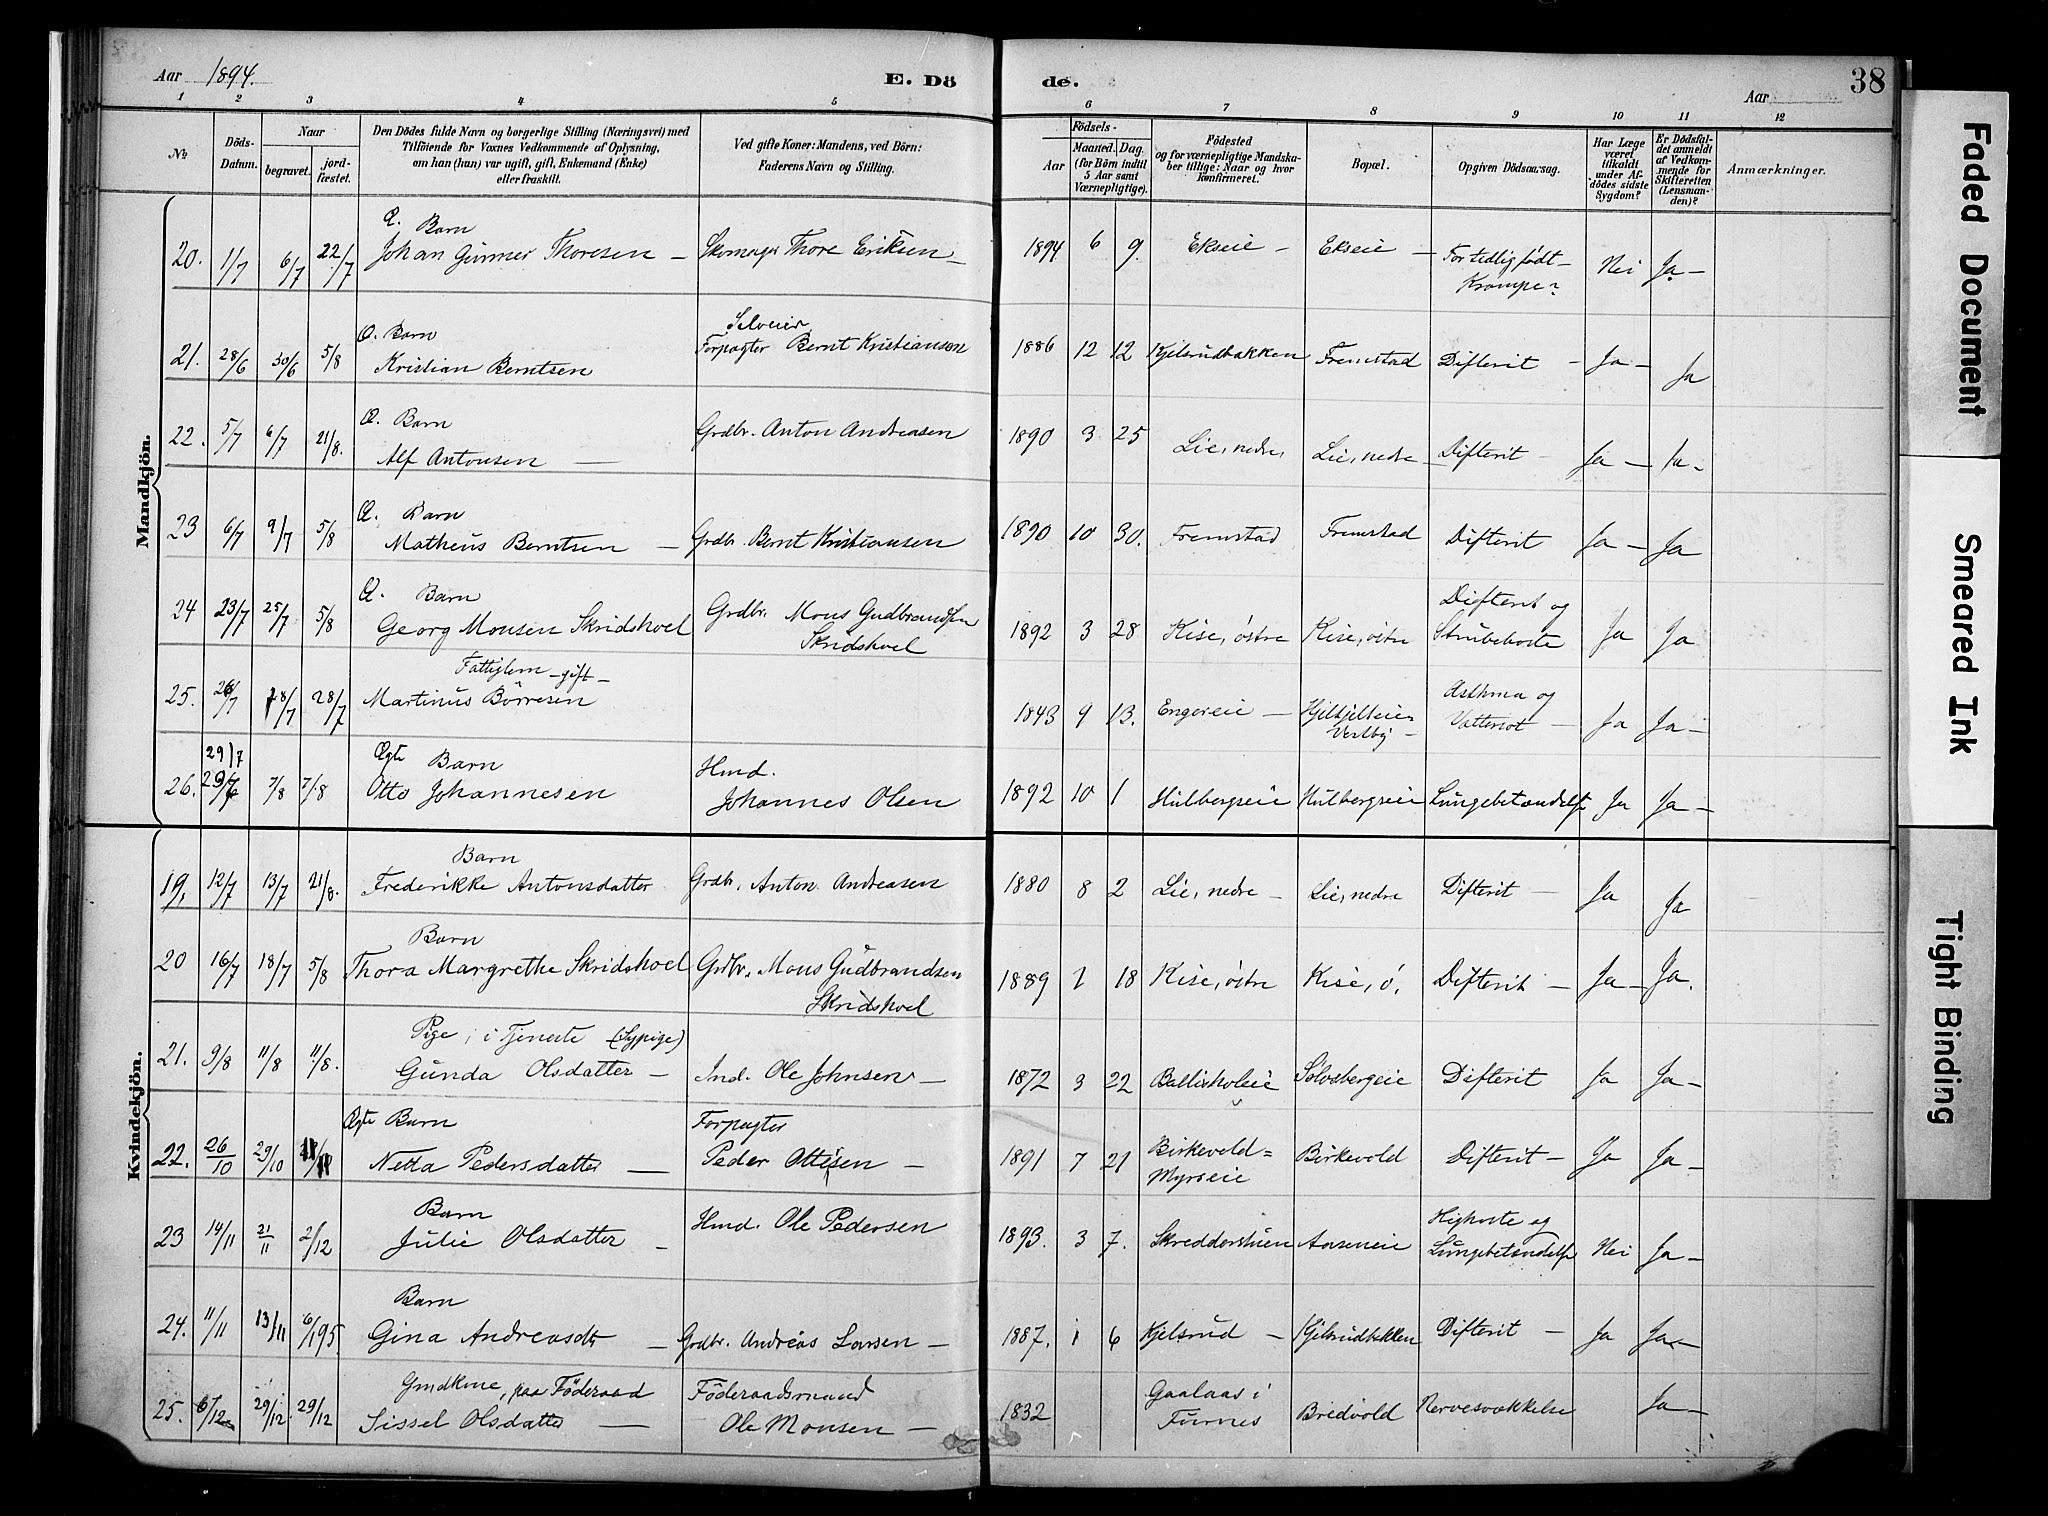 Aar 1894. E. Dö de. Aar 38
1 2 3 4 5 6 7 8 9 10 11 12
No
Döds-Datum.
Naar begravet. jordfæstet.
Den Dödes fulde Navn og borgerlige Stilling (Næringsvei) med
Tilföiende for Voxnes Vedkommende af Oplysning,
om han (hun) var ugift, gift, Enkemand (Enke)
eller fraskilt.
Ved gifte Koner: Mandens, ved Börn:
Faderens Navn og Stilling.
Födsels-
Aar Maaned. Dag.
(for Börn indtil
5 Aar samt
Værnepligtige).
Födested
og for værnepligtige Mandskaber tillige: Naar og hvor
konfirmeret.
Bopæl.
Opgiven Dödsaarsag.
Har Læge
været
tilkaldt
under Afdödes sidste
Sygdom?
Er Dödsfaldet anmeldt
af Vedkommende for
Skifteretten
(Lensmanden)?
Anmærkninger.
Mandkjön.
20. 1/7 6/7 22/7 Æ. Barn
Johan Gunner Thoresen — Skomager Thore Eriksen — 1894 6 9. Ekseie — Ekseie — For tidlig født — Krampe? Nei Ja —
21. 28/6 30/6 5/8 Æ. Barn
Kristian Berntsen Selveier
Forpagter Bernt Kristiansen 1886 12 12 Kjelsrudbakken Fremstad Difterit — Ja — Ja
22. 5/7 6/7 21/8. Æ. Barn
Alf Antonsen — Grdbr. Anton Andreasen 1890 3 25 Lie, nedre, Lie, nedre — Difterit — Ja — Ja —
23 6/7 9/7 5/8 Æ. Barn
Matheus Berntsen — Grdbr. Bernt Kristiansen 1890 10 30. Fremstad Fremstad Difterit Ja — Ja
24 23/7 25/7 5/8 Æ. Barn
Georg Monsen Skridshoel Grdbr. Mons Gudbrandsen
Skridshoel 1892 3 28 Kise, østre Kise, østre Difterit og
Strubehoste Ja Ja
25. 26/7 28/7 28/7 Fattiglem — gift —
Martinus Börresen 1843 9 13. Engereie — Vestby — Asthma og
Vattersot — Ja Ja —
26. 29/7 7/8 7/8 Ægte Barn
Otto Johannesen Hmd.
Johannes Olsen 1892 10 1 Hulbergseie Hulbergseie Lungebetændelse Ja Ja —
Kvindekjön.
19, 12/7 13/7 21/8. Barn
Frederikke Antonsdatter Grdbr. Anton Andreasen 1880 8 2 Lie, nedre — Lie, nedre Difterit — Ja Ja
20 16/7 18/7 5/8 Barn
Thora Margrethe Skridshoel Grdbr. Mons Gudbrandsen
Skridshoel 1889 1 18 Kise, østre Kise, ø. Difterit — Ja — Ja.
21. 9/8 11/8 11/8. Pige, i Tjeneste (Sypige)
Gunda Olsdatter — Ind. Ole Johnsen — 1872 3 22 Ballisholeie Solvsbergeie Difterit Ja Ja —
22. 26/10 29/10 Ægte Barn
Netta Pedersdatter — Forpagter
Peder Ottisen — 1891 7 21 Birkevold=
Myrseie Birkevold Difterit — Ja Ja —
23 14/11 21/11 2/12 Barn
Julie Olsdatter — Hmd. Ole Pedersen 1893. 3 7. Skredderstuen Aaseneie Kighoste og
Lungebetændelse Nei Ja —
24. 11/11 13/11 6/1 95. Barn
Gina Andreasdtr — Grdbr. Andreas Larsen — 1887. 1 6 Kjelsrud — Kjelsrudbakken Difterit — Ja Ja —
25. 6/12 29/12. 29/12 Gmdkone, paa Föderaad
Sissel Olsdatter — Föderaadsmand
Ole Monsen — 1832 Gaalaas i
Furnes Bredvold Nervesvækkelse Ja —
Faded Document
Smeared Ink
Tight Binding